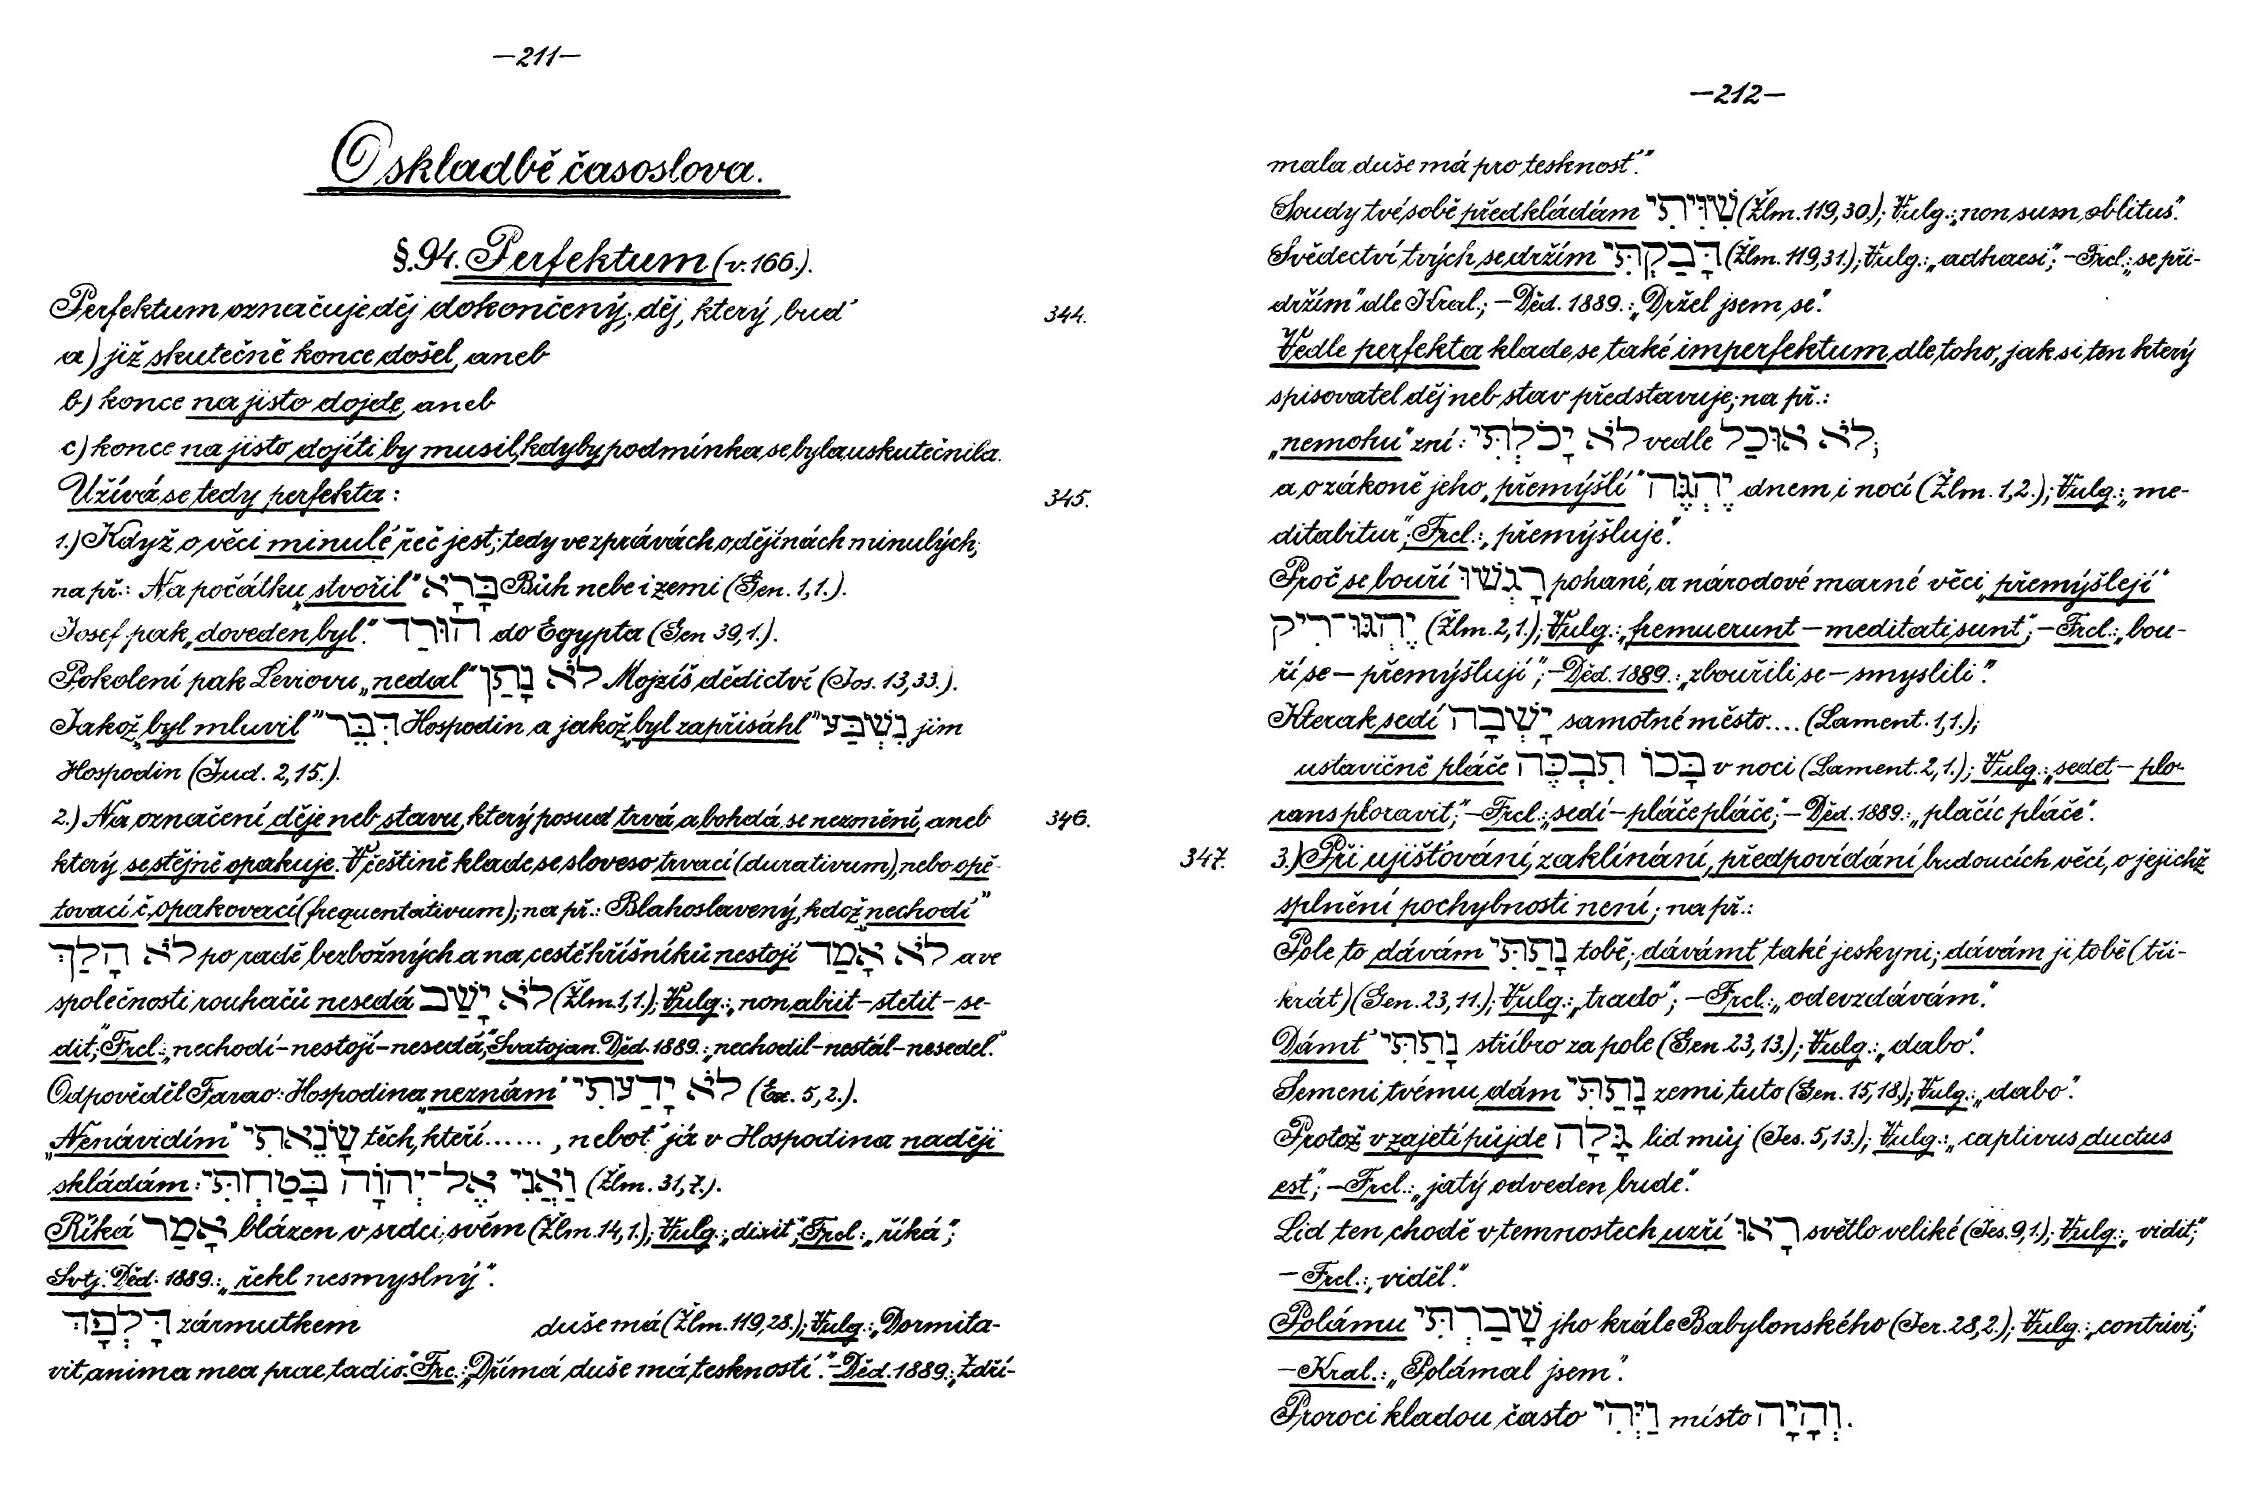 —211—
O skladbě časoslova.
§. 94. Perfektum (v. 166.).
Perfektum označuje děj dokončený; děj, který buď 344.
a) již skutečně konce došel, aneb
b) konce na jisto dojde, aneb
c) konce na jisto dojíti by musil, kdyby podmínka se byla uskutečnila.
Užívá se tedy perfekta: 345.
1.) Když o věci minulé řeč jest; tedy ve zprávách o dějinách minulých;
na př.: Na počátku „stvořil" בָּרָא Bůh nebe i zemi (Gen. 1,1.).
Josef pak „doveden byl." הוּרַד do Egypta (Gen 39,1.).
Pokolení pak Leviovu „nedal" לֹא נָתַן Mojzíš dědictví (Jos. 13,33.).
Jakož „byl mluvil" דִּבֶּר Hospodin a jakož „byl zapřisáhl" נִשְׁבַּע jim
Hospodin (Jud. 2,15.).
2.) Na označení děje neb stavu, který posud trvá, a bohdá se nezmění, aneb 346.
který se stějně opakuje. V češtině klade se sloveso trvací (durativum), nebo opě-
tovací č. opakovací (frequentativum); na př.: Blahoslavený, kdož „nechodí"
לֹא הָלַךְ po radě bezbožných a na cestě hříšníků nestojí לֹא עָמַד a ve
společnosti rouhačů nesedá לֹא יָשַׁב (Žlm. 1,1.); Vulg.: „non abiit – stetit – se-
dit;" Frcl.: „nechodí – nestojí – nesedá," Svatojan. Děd. 1889.: „nechodil – nestál – nesedel."
Odpověděl Farao: Hospodina „neznám" לֹא יָדַעְתִּי (Ex. 5,2.).
„Nenávidím" שָׂנֵאתִי těch, kteří......, neboť já v Hospodina naději
skládám: וַאֲנִי אֶל־יְהוָֹה בָּטַחְתִּי (Žlm. 31,7.).
Říká אָמַר blázen v srdci svém (Žlm. 14,1.); Vulg.: „dixit"; Frcl.: „říká";
Svtj. Děd. 1889.: „řekl nesmyslný".
דָּלְפָה zármutkem duše má (Žlm. 119,28.); Vulg.: „Dormita-
vit anima mea prae tadio." Frc.: „Dřímá duše má teskností." – Děd. 1889.: „Zdří-
—212—
mala duše má pro tesknosť."
Soudy tvé sobě předkládám שִׁוִּיתִי (Žlm. 119,30.); Vulg.: „non sum oblitus".
Svědectví tvých se držím דָּבַקְתִּי (Žlm. 119,31.); Vulg.: „adhaesi"; – Frcl.: „se při-
držím" dle Kral.; – Děd. 1889.: „Držel jsem se".
Vedle perfekta klade se také imperfektum dle toho, jak si ten který
spisovatel děj neb stav představuje; na př.:
„nemohu" zní: לֹא יָכֹלְתִּי vedle לֹא אוּכַל;
a o zákoně jeho „přemýšlí" יֶהְגֶּה dnem i nocí (Žlm. 1,2.); Vulg.: „me-
ditabitur"; Frcl.: „přemýšluje".
Proč se bouří רָגְשׁוּ pohané, a národové marné věci „přemýšlejí"
יֶהְגּוּ־רִיק (Žlm. 2,1.); Vulg.: „fremuerunt – meditati sunt"; – Frcl.: „bou-
ří se – přemýšlují"; – Děd. 1889.: „zbouřili se – smyslili".
Kterak sedí יָשְׁבָה samotné město.... (Lament. 1,1.);
ustavičně pláče בָּכוֹ תִבְכֶּה v noci (Lament. 2,1.); Vulg.: „sedet – plo-
rans ploravit"; – Frcl.: „sedí – pláče pláče"; – Děd. 1889.: „plačíc pláče".
347. 3.) Při ujišťování, zaklínání, předpovídání budoucích věcí, o jejichž
splnění pochybnosti není; na př.:
Pole to dávám נָתַתִּי tobě; dávámť také jeskyni; dávám ji tobě (tři-
krát) (Gen. 23,11.); Vulg.: „trado"; – Frcl.: „odevzdávám."
Dámť נָתַתִּי stříbro za pole (Gen. 23,13.); Vulg.: „dabo".
Semeni tvému dám נָתַתִּי zemi tuto (Gen. 15,18.); Vulg.: „dabo".
Protož v zajetí půjde גָּלָה lid můj (Jes. 5,13.); Vulg.: „captivus ductus
est"; – Frcl.: „jatý odveden bude".
Lid ten chodě v temnostech uzří רָאוּ světlo veliké (Jes. 9,1.); Vulg.: „vidit";
– Frcl.: „viděl".
Polámu שָׁבַרְתִּי jho krále Babylonského (Jer. 28,2.); Vulg.: „contrivi";
– Kral.: „Polámal jsem".
Proroci kladou často וַיְּהִי místo וְהָיָה.